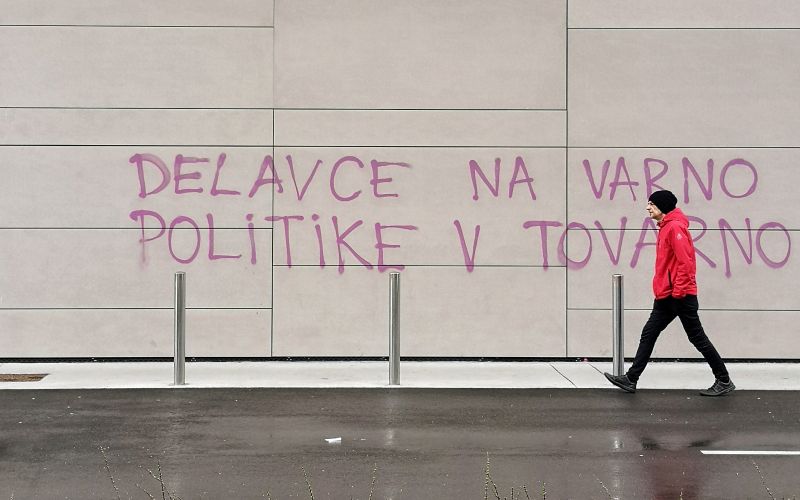 DELAVCE NA VARNO
POLITIKE V TOVARNO